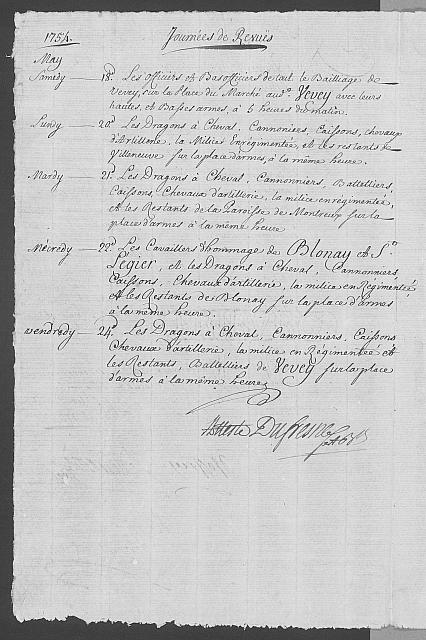 1754. Journées de Revuës
May
Samedy — 18.e Les officiers et Basofficiers de tout le Bailliage de
Vevey, sur la Place du Marché aud.t Vevey avec leurs
hautes, et Basses armes, à 5 heures du matin.
Lundy — 20.e Les Dragons à Cheval, Cannoniers, Caissons, chevaux
d'Artillerie, la Milice Enrégimentée, et les restants de
Villeneuve sur la place d'armes, à la même heure.
Mardy — 21.e Les Dragons à Cheval, Cannonniers, Battelliers,
Caissons, Chevaux d'artillerie, la milice en regimentée,
et les Restants de la Paroisse de Montreux sur la
place d'armes à la même heure
Mecredy — 22.e Les Cavalliers d'hommage de Blonay et S.t
Légier, et les Dragons à Cheval, Cannonniers,
Caissons, Chevaux d'artillerie, la milice en Regimentée
et les Restants de Blonay sur la place d'armes
à la même heure.
Wendredy — 24.e Les Dragons à Cheval, Cannonniers, Caissons
Chevaux d'Artillerie, la milice en Regimentée et
les Restants, Battelliers de Vevey sur la place
d'armes à la même heure
Atteste Dufresne